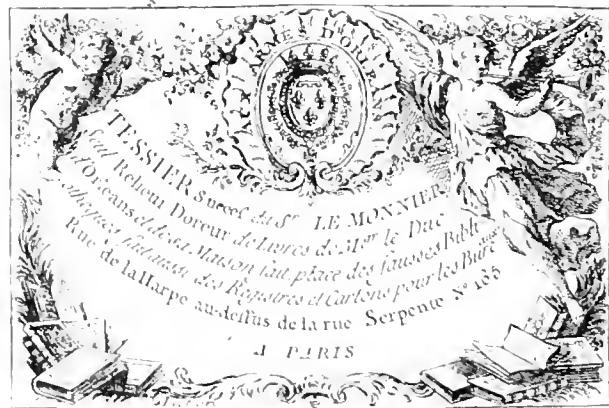 AUX ARMES D'ORLE
TESSIER Succes.^r du S.^r LE MONNIER
Seul Relieur Doreur de Livres de M.^gr le Duc
d'Orleans et de sa Maison fait place des fausses Bibli
otheques fait aussi des Registres et Cartons pour les Bure^aux
Rue de la Harpe au-dessus de la rue Serpente N^o 135
A PARIS